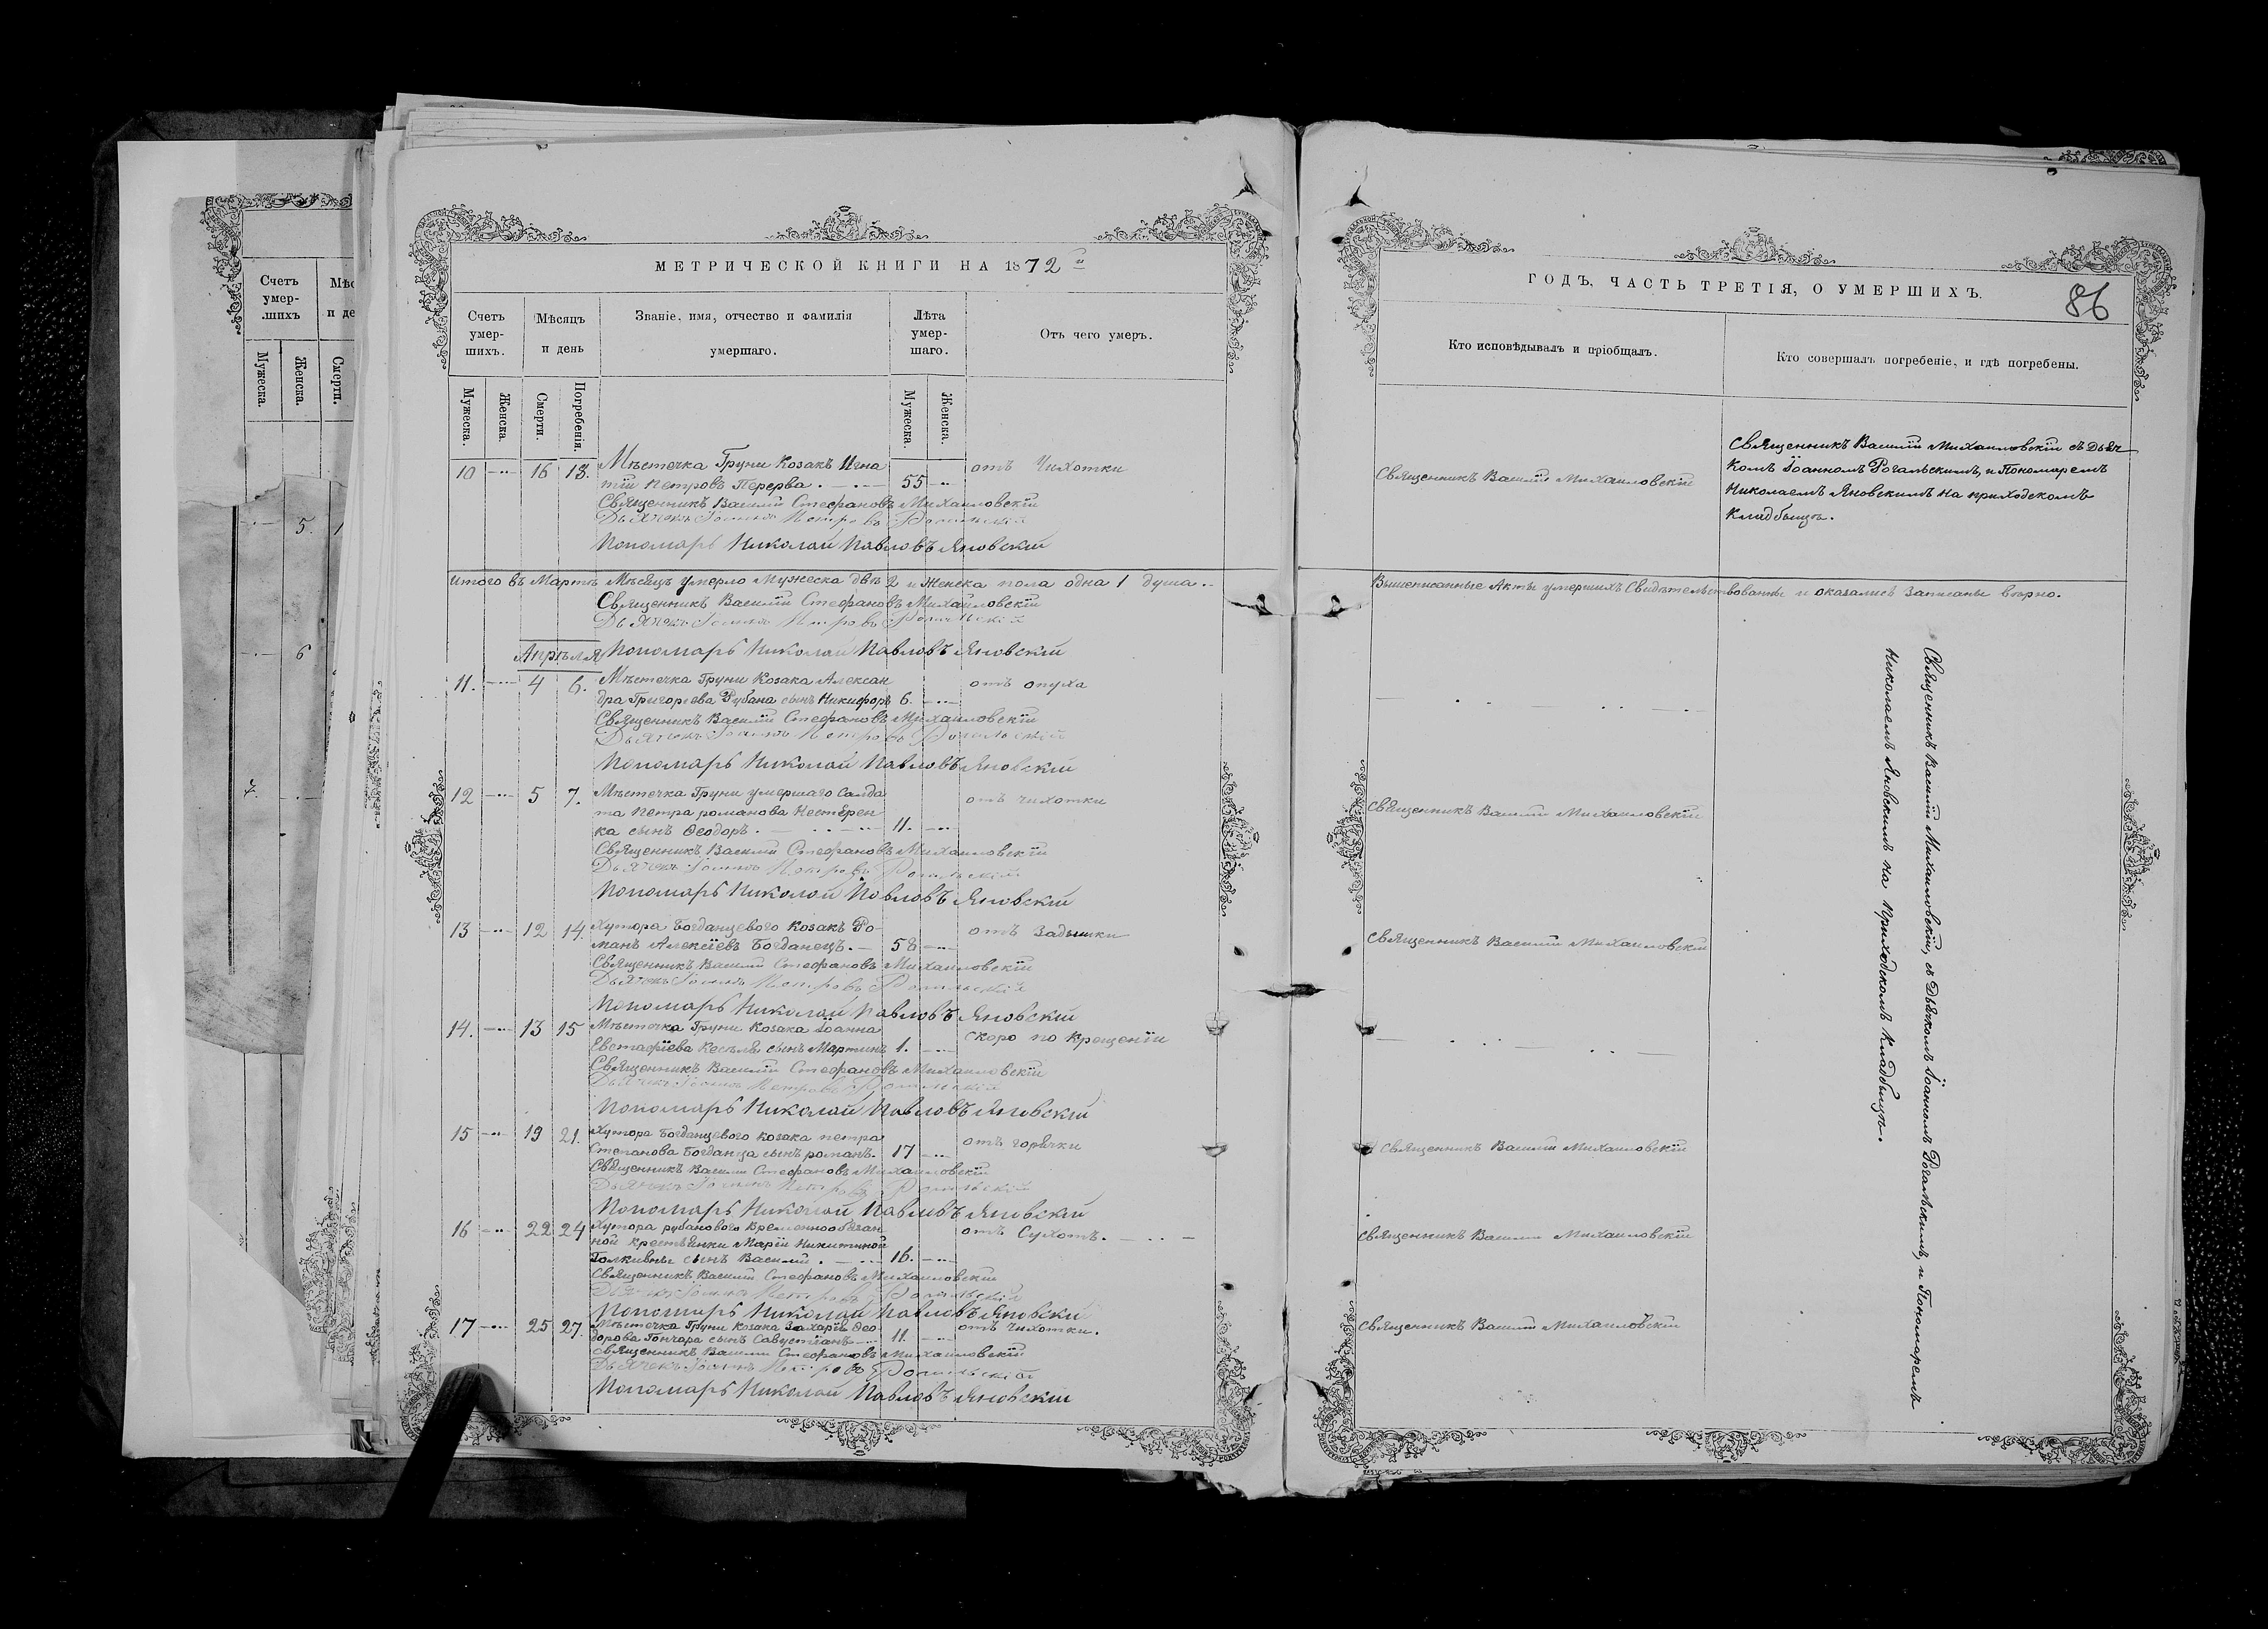 Счетъ
умер-
шихъ
Мѣс
и де
Мужеска.
Женска.
Смерти.
5.
6
7.
МЕТРИЧЕСКОЙ КНИГИ НА 1872й
Счетъ умер-шихъ.
Мѣсяцъ и день
Званіе, имя, отчество и фамилія умершаго.
Лѣта умер-шаго.
Отъ чего умеръ.
Мужеска.
Женска.
Смерти.
Погребенія.
Мужеска.
Женска.
10 16 18. Мѣстечка Груни Козакъ Игна
тій Петровъ Перерва. 55 отъ Чихотки
Священникъ Василій Стефановъ Михайловскій
Дьячекъ Іоаннъ Петровъ Рогальскій
Пономарь Николай Павловъ Яновскій
Итого въ Мартѣ Мѣсяцѣ умерло Мужеска двѣ 2 и Женска пола одна 1 душа.
Священникъ Василій Стефановъ Михайловскій
Дьячекъ Іоаннъ Петровъ Рогальскій
Апрѣля Пономарь Николай Павловъ Яновскій
11. 4 6. Мѣстечка Груни Козака Алексан
дра Григорьева Рубана сынъ Никифоръ 6. отъ опуха
Священникъ Василій Стефановъ Михайловскій
Дьячекъ Іоаннъ Петровъ Рогальскій
Пономарь Николай Павловъ Яновскій
12 5 7. Мѣстечка Груни умершаго Салда
та Петра романова Нестерен
ка сынъ Ѳеодоръ. 11. отъ чихотки
Священникъ Василій Стефановъ Михайловскій
Дьячекъ Іоаннъ Петровъ Рогальскій
Пономарь Николай Павловъ Яновскій
13 12 14. Хутора Богданцевого Козакъ Ро
манъ Алексіевъ Богданецъ. 58 отъ Задышки
Священникъ Василій Стефановъ Михайловскій
Дьячекъ Іоаннъ Петровъ Рогальскій
Пономарь Николай Павловъ Яновскій
14. 13 15 Мѣстечка Груни Козака Іоанна
Евстафіева сынъ Мартинъ 1. скоро по крещеніи
Священникъ Василій Стефановъ Михайловскій
Дьячекъ Іоаннъ Петровъ Рогальскій
Пономарь Николай Павловъ Яновскій
15 19 21. Хутора Богданцевого козака петра
Степанова Богданца сынъ романъ. 17 отъ горячки
Священникъ Василій Стефановъ Михайловскій
Дьячекъ Іоаннъ Петровъ Рогальскій
Пономарь Николай Павловъ Яновскій
16 22 24 Хутора рубанового Временнообязан
ной крестьянки Маріи Никитиной
сынъ Василій. 16. отъ Сухотъ.
Священникъ Василій Стефановъ Михайловскій
Дьячекъ Іоаннъ Петровъ Рогальскій
Пономарь Николай Павловъ Яновскій
17 25 27. Мѣстечка Груни Козака Захарія Ѳео
дорова Гончара сынъ Савустіанъ 11. отъ Чихотки.
Священникъ Василій Стефановъ Михайловскій
Дьячекъ Іоаннъ Петровъ Рогальскій
Пономарь Николай Павловъ Яновскій
ГОДЪ, ЧАСТЬ ТРЕТІЯ, О УМЕРШИХЪ.
86
Кто исповѣдывалъ и пріобщалъ.
Кто совершалъ погребеніе, и гдѣ погребены.
Священникъ Василій Михайловскій
Священникъ Василій Михайловскій съ Дьяч
комъ Іоанномъ Рогальскимъ, и Пономаремъ
Николаемъ Яновскимъ на приходскомъ
кладбищѣ.
Вышеписанные Акты умершихъ Свидѣтельствованны и оказались Записаны вѣрно.
Священникъ Василій Михайловскій
Священникъ Василій Михайловскій
Священникъ Василій Михайловскій
Священникъ Василій Михайловскій
Священникъ Василій Михайловскій
Священникъ Василій Михайловскій, съ Дьячкомъ Іоанномъ Рогальскимъ, и Пономаремъ
Николаемъ Яновскимъ на приходскомъ Кладбищѣ.